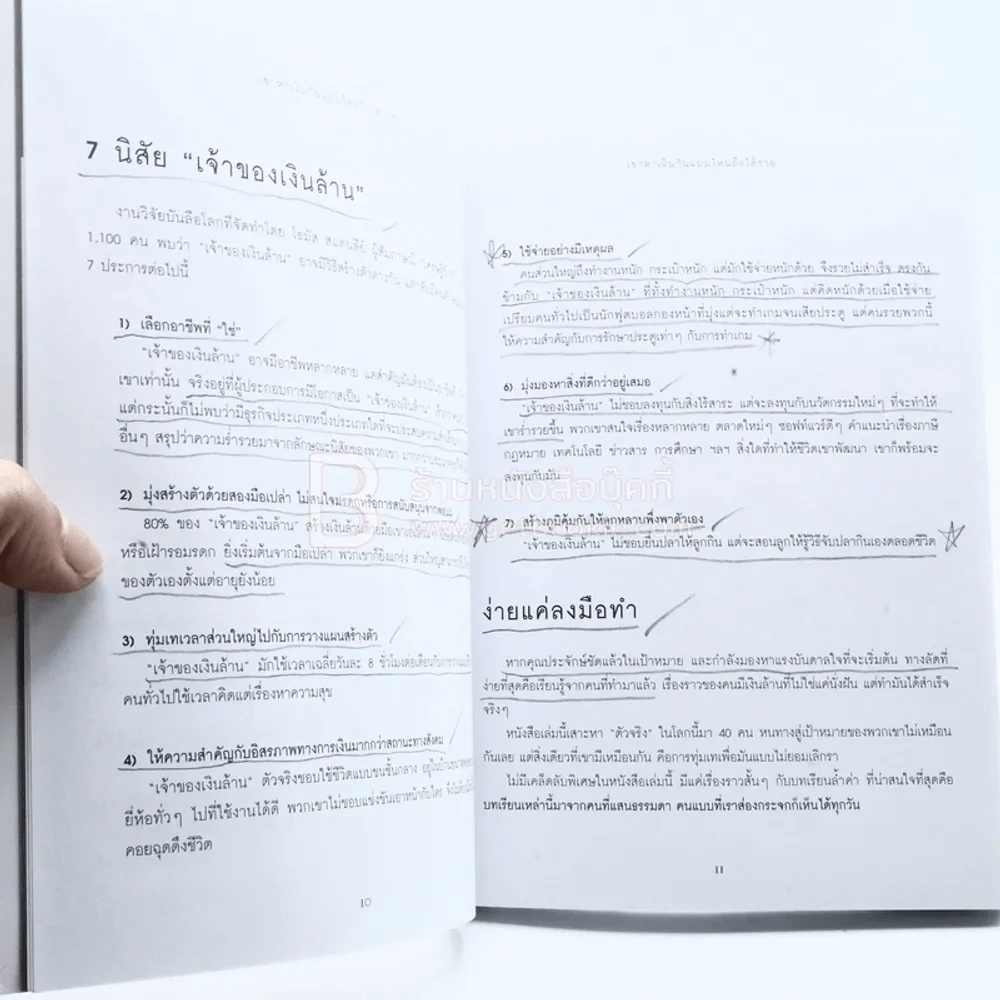 7 นิสัย “เจ้าของเงินล้าน”
งานวิจัยบันลือโลกที่จัดทำโดย โธมัส สแตนลีย์ ผู้สัมภาษณ์
1,100 คน พบว่า “เจ้าของเงินล้าน” อาจมีวิธีสร้างตัวต่างกัน
7 ประการต่อไปนี้
1) เลือกอาชีพที่ “ใช่”
“เจ้าของเงินล้าน” อาจมีอาชีพหลากหลาย แต่สำคัญมันต้องเป็น
เขาเท่านั้น จริงอยู่ที่ผู้ประกอบการมีโอกาสเป็น “เจ้าของเงินล้าน”
แต่กระนั้นก็ไม่พบว่ามีธุรกิจประเภทหนึ่งประเภทใดที่จะประสบความสำเร็จ
อื่นๆ สรุปว่าความร่ำรวยมาจากลักษณะนิสัยของพวกเขา มากกว่า
2) มุ่งสร้างตัวด้วยสองมือเปล่า ไม่สนใจมรดกหรือการสนับสนุนจาก
80% ของ “เจ้าของเงินล้าน” สร้างเงินล้านด้วยมือเขาเอง
หรือเฝ้ารอมรดก ยิ่งเริ่มต้นจากมือเปล่า พวกเขาก็ยิ่งแกร่ง ส่วนใหญ่
ของตัวเองตั้งแต่อายุยังน้อย
3) ทุ่มเทเวลาส่วนใหญ่ไปกับการวางแผนสร้างตัว
“เจ้าของเงินล้าน” มักใช้เวลาเฉลี่ยวันละ 8 ชั่วโมงต่อเดือนกับการ
คนทั่วไปใช้เวลาคิดแต่เรื่องหาความสุข
4) ให้ความสำคัญกับอิสรภาพทางการเงินมากกว่าสถานะทางสังคม
“เจ้าของเงินล้าน” ตัวจริงชอบใช้ชีวิตแบบชนชั้นกลาง อยู่ในบ้าน
ยี่ห้อทั่วๆ ไปที่ใช้งานได้ดี พวกเขาไม่ชอบแข่งขันเอาหน้ากับใคร
คอยฉุดดึงชีวิต
10
เขาหาเงินกันแบบไหนถึงได้รวย
5) ใช้จ่ายอย่างมีเหตุผล
คนส่วนใหญ่ถึงทำงานหนัก กระเป๋าหนัก แต่มักใช้จ่ายหนักด้วย จึงรวยไม่สำเร็จ ตรงกัน
ข้ามกับ “เจ้าของเงินล้าน” ที่ทั้งทำงานหนัก กระเป๋าหนัก แต่คิดหนักด้วยเมื่อใช้จ่าย
เปรียบคนทั่วไปเป็นนักฟุตบอลกองหน้าที่มุ่งแต่จะทำเกมจนเสียประตู แต่คนรวยพวกนี้
ให้ความสำคัญกับการรักษาประตูเท่าๆ กับการทำเกม
6) มุ่งมองหาสิ่งที่ดีกว่าอยู่เสมอ
“เจ้าของเงินล้าน” ไม่ชอบลงทุนกับสิ่งไร้สาระ แต่จะลงทุนกับนวัตกรรมใหม่ๆ ที่จะทำให้
เขาร่ำรวยขึ้น พวกเขาสนใจเรื่องหลากหลาย ตลาดใหม่ๆ ซอฟท์แวร์ดีๆ คำแนะนำเรื่องภาษี
กฎหมาย เทคโนโลยี ข่าวสาร การศึกษา ฯลฯ สิ่งใดที่ทำให้ชีวิตเขาพัฒนา เขาก็พร้อมจะ
ลงทุนกับมัน
B ร้านหนังสือบุ๊คกี้
7) สร้างภูมิคุ้มกันให้ลูกหลานพึ่งพาตัวเอง
“เจ้าของเงินล้าน” ไม่ชอบยื่นปลาให้ลูกกิน แต่จะสอนลูกให้รู้วิธีจับปลากินเองตลอดชีวิต
ง่ายแค่ลงมือทำ
หากคุณประจักษ์ชัดแล้วในเป้าหมาย และกำลังมองหาแรงบันดาลใจที่จะเริ่มต้น ทางลัดที่
ง่ายที่สุดคือเรียนรู้จากคนที่ทำมาแล้ว เรื่องราวของคนมีเงินล้านที่ไม่ใช่แค่นั่งฝัน แต่ทำมันได้สำเร็จ
จริงๆ
หนังสือเล่มนี้เสาะหา “ตัวจริง” ในโลกนี้มา 40 คน หนทางสู่เป้าหมายของพวกเขาไม่เหมือน
กันเลย แต่สิ่งเดียวที่เขามีเหมือนกัน คือการทุ่มเทเพื่อมันแบบไม่ยอมเลิกรา
ไม่มีเคล็ดลับพิเศษในหนังสือเล่มนี้ มีแค่เรื่องราวสั้นๆ กับบทเรียนล้ำค่า ที่น่าสนใจที่สุดคือ
บทเรียนเหล่านี้มาจากคนที่แสนธรรมดา คนแบบที่เราส่องกระจกก็เห็นได้ทุกวัน
11